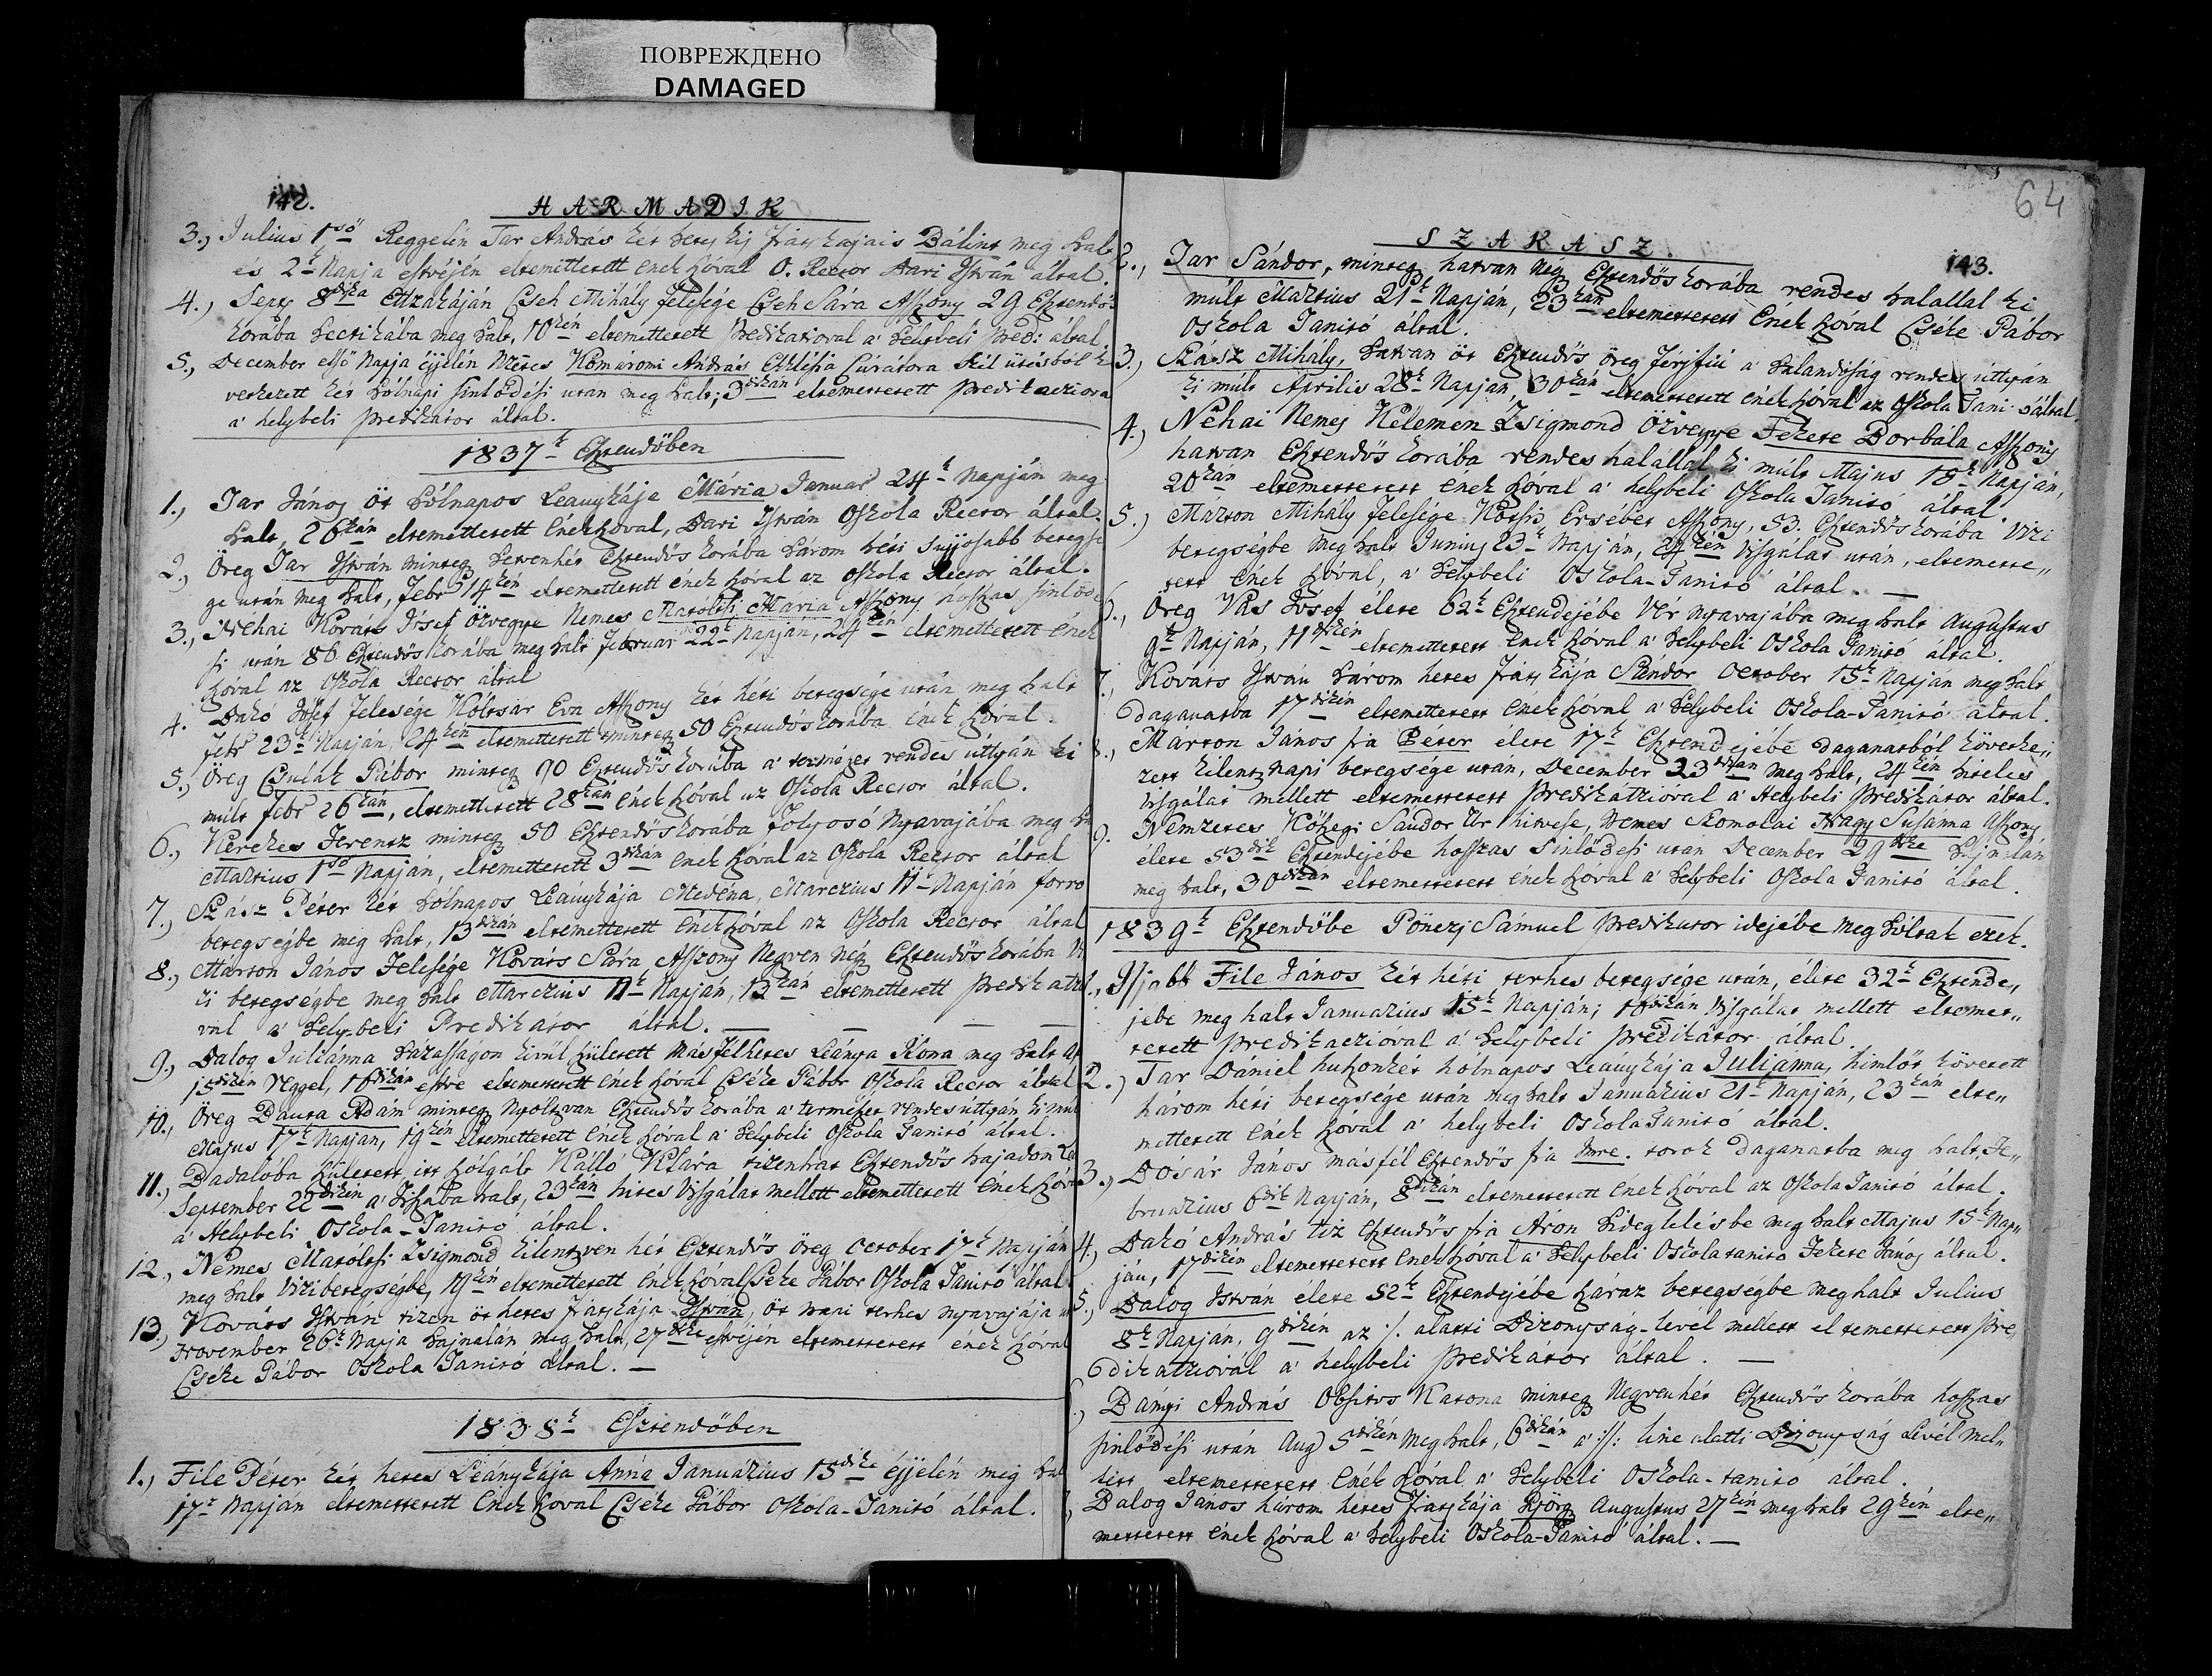 ПОВРЕЖДЕНО
DAMAGED
142.
HARMADIK
3., Julius 1ső Reggelén Tar András két hetes kis fiatskájais Bálint meg halt
és 2k Napja estvéjén eltemettetett Ének szóval O. Rector Dari István által.
4., Sept 8dika éttzakáján Cseh Mihály felesége Cseh Sára Asszony 29 Esztendős
korába hectikába meg halt, 10kén eltemettetett Predikatioval a' helybeli Pred: által.
5., December első Napja éjjelén Nemes Komáromi András Ekklésia Curátora Szél ütésből k
vetkezett két hólnapi sinlődési után meg halt; 3dikán eltemettetett Predikatziova
a' helybeli Predikátor által.
1837k Esztendőben
1., Tar János öt hólnapos Leánykája Mária Januar 24k napján meg
halt, 26kán eltemettetett Énekszoval, Dari István Oskola Rector által.
2., Öreg Tar István mintegy hetvenhét Esztendős korába három heti sujjosabb betegsé
ge után meg halt, Febr 14kén eltemettetett Ének szóval az Oskola Rector által.
3., Néhai Kováts Jósef Özvegye Nemes Matóltsi Maria Asszony hosszas sinlőde
si után 86 Esztendős korába meg halt Februar 22k Napján, 24kén eltemettetett Ének
szóval az Oskola Rector által
4. Dakó Jósef felesége Kóltsar Eva Asszony két héti betegsége után meg halt
Febr 23k Napján, 24kén eltemettetett mintegy 50 Esztendős korába Ének szóval.
5., Öreg Csulák Gábor mintegy 90 Esztendős korába a' természet rendes úttyán ki
múlt Febr 26kán, eltemettetett 28kán Ének szóval az Oskola Rector által.
6., Kerekes Ferentz mintegy 50 Esztendős korába folyosó Nyavajába meg ha
Martius 1ső Napján, eltemettetett 3dikán Ének szóval az Oskola Rector által
7., Szász Péter két hólnapos Leánykája Medéna, Marczius 11k Napján forro
betegségbe meg halt, 13dikán eltemettetett Énekszóval az Oskola Rector által
8., Márton János Felesége Kováts Sára Asszony Negyven négy Esztendős korába Vi
zi betegségbe meg halt Marczius 11k Napján, 13kán eltemettetett Predikatzi
val a' hely-beli Predikátor által. — — — —
9., Dalog Juliánna házasságon kivűl született másfélhetes Leánya Ilona meg halt Ap
15dikén reggel, 16dikán estve eltemettetett Ének szóval Cséke Gábor Oskola Rector által
10., Öreg Dauta Ádám mintegy nyoltzvan Esztendős korába a' termeszet rendes úttyán ki múl
Majus 17k Napján, 19kén eltemettetett Ének szóval a' helybeli Oskola Tanitó által.
11., Dadalóba született, itt szólgált Kálló Klára tizenhat Esztendős hajadon Le
September 22dikén a' Tiszába halt, 23kán hites Visgálat mellett eltemettetett Ének szóva
a' Helybeli Oskola-Tanitó által.
12., Nemes Matóltsi Zsigmond kilentzven hét Esztendős öreg October 17k Napján
meg halt Vizibetegségbe, 19kén eltemettetett Ének szóval Cséke Gábor Oskola Tanitó által
13., Kováts István tizen öt hetes fiatskája István, öt napi terhes nyavajája u
November 26k Napja hajnalán meg halt, 27dike estvéjén eltemettetett ének szóval
Cséke Gábor Oskola Tanitó által. —
1838k Esztendőben
1., File Péter két hetes Leánykája Anna Januárius 15dike éjjelén meg hal
17k Napján eltemettetett Ének szoval Cséke Gábor Oskola-Tanitó által.
64
SZAKASZ.
143.
2., Tar Sándor, mintegy hatvan négy Esztendős korába rendes halallal ki
múlt Martius 21k Napján, 23kán eltemettetett Ének szóval Cséke Gábor
Oskola Tanitó által.
3., Szász Mihály, hatvan öt Esztendős öreg férjfiú a' halandóság rendes úttyán
ki múlt Aprilis 28k Napján, 30kán eltemettetett ének szóval az Oskola Tani ó által.
4., Néhai Nemes Kelemen Zsigmond Özvegye Fekete Borbála Asszony
hatvan Esztendős korába rendes halallal ki múlt Majus 18k Napján,
20kán eltemettetett Ének szoval a' helybeli Oskola Tanitó által.
5., Marton Mihály felesége Kotsis Ersébet Asszony, 53. Esztendős korába Vizi
betegségbe meg halt Junius 23k Napján, 24kén Visgálat után, eltemette„
tett Ének szóval, a' helybeli Oskola-Tanitó által. —
6., Öreg Vas Jósef élete 62k Esztendejébe Vér nyavajába meg halt Augustus
9k Napján, 11dikén eltemettetett Ének szóval a' helybeli Oskola Tanitó által.
7., Kováts István három hetes fiatskája Sándor October 15k Napján meg halt
Daganatba 17dikén eltemettetett Ének szóval a' helybeli Oskola-Tanitó által.
8., Marton János fia Peter elete 17k Esztendejébe Daganatból követke„
zett kilentz napi betegsége után, December 23dikan meg halt, 24kén hiteles
Visgálat mellett eltemettetett Predikátzióval a' Helybeli Predikátor által.
9. Nemzetes Kőszegi Sándor Ur hitvese, Nemes Komolai Nagy Susanna Asszony
élete 53dik Esztendejébe hosszas Sinlődesi után December 29dike hajnalán
meg halt, 30dikán eltemettetett ének szoval a' helybeli Oskola Tanitó által.
1839k Esztendőbe Pönczj Sámuel Predikator idejébe meg hóltak ezek.
1., Ifjabb File János két héti terhes betegsége után, élete 32k Esztende„
jebe meg halt Januarius 15k Napján; 16dikán Visgálat mellett eltemet„
tetett Predikaczióval a' helybeli Predikátor által.
2., Tar Dániel huszonkét hólnapos Leánykája Julianna, himlőt követett
három héti betegsége után meg halt Januárius 21k Napján, 23kán elte„
mettetett Ének szóval a' helybeli Oskola Tanitó által.
3., Dósár János másfél Esztendős fia Imre. torok Daganatba meg halt, Fe„
bruarius 6dik Napján, 8dikán eltemettetett Ének szóval az Oskola Tanitó által.
4., Dakó András tiz Esztendős fia Áron hideglelésbe meg halt Majus 15k Nap„
ján, 17dikén eltemettetett Ének szóval a' helybeli Oskolatanito Fekete János által.
5., Dalog Istvan élete 52k Esztendejébe száraz betegségbe meghalt Julius
8k Napján, 9dikén az :/. alatti Bizonyság-levél mellett eltemettetett Pre
dikatzioval a' helybeli Predikator által. —
Dányi András Obsitos Katona mintegy Negyvenhét Esztendős korába hosszas
sinlődési után Aug 5dikén meg halt, 6dikán a' :/: line alatti Bizonyság Levél mel„
lett eltemettetett Ének szóval a' helybeli Oskola-tanitó által.
Dalog János három hetes fiatskája György Augustus 27kén meg halt 29kén elte„
mettetett Ének szóval a' helybeli Oskola-Tanitó által. —